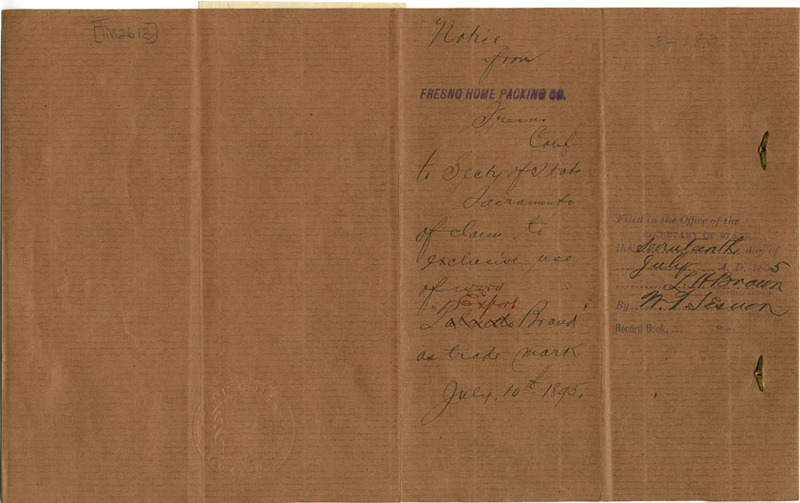 [TM2613]
Notice
from
FRESNO HOME PACKING CO.
Fresno
Calif
to Secty of State
Sacramento
of claim to
exclusive use
of word
Export
" Brand"
as trade mark
July, 10th 1895.
Filed in the Office of the
SECRETARY OF STATE
the Seventeenth day of
July A. D. 1895
L. H. Brown
By W. T. Sesnon
Record Book,